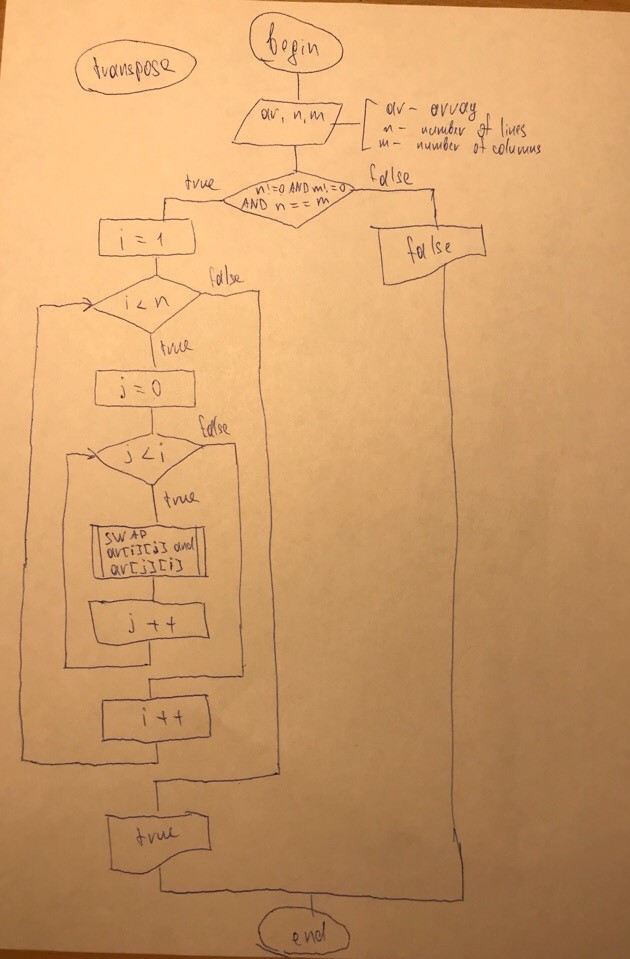 transpose
begin
ar, n, m
ar – array
n – number of lines
m – number of columns
true
n!=0 AND m!=0
AND n == m
false
i = 1
false
i < n
false
true
j = 0
false
j < i
true
SWAP
ar[i][j] and
ar[j][i]
j ++
i ++
true
end